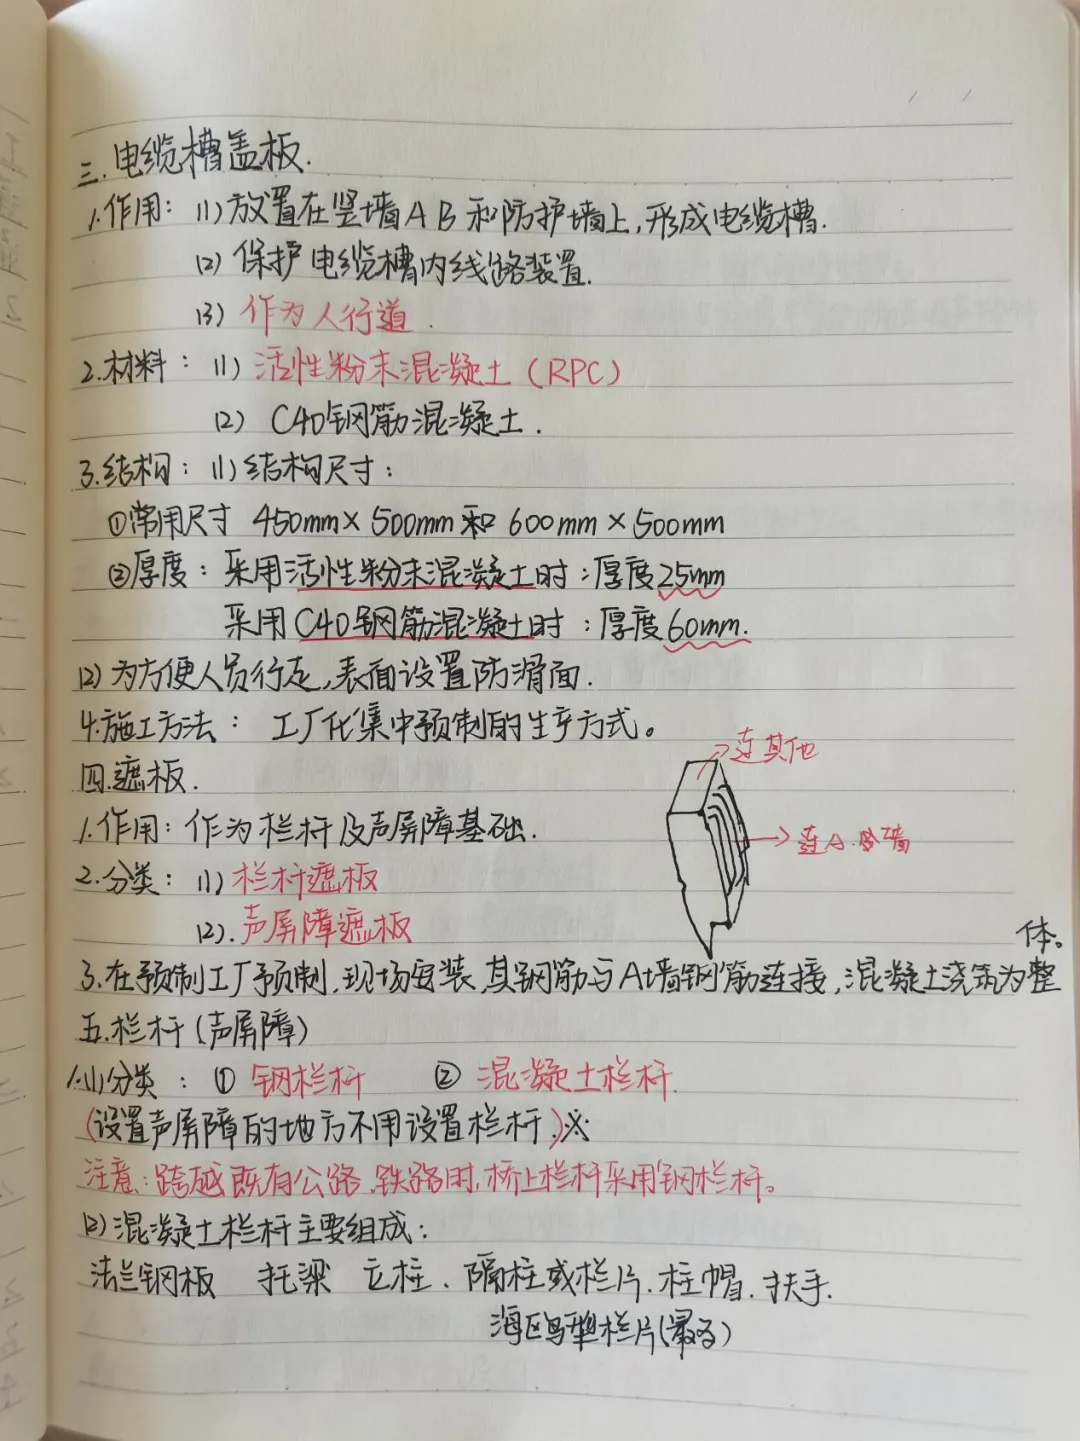 三.电缆槽盖板.
1.作用: (1)放置在竖墙A B和防护墙上,形成电缆槽.
(2)保护电缆槽内线路装置.
(3)作为人行道.
2.材料: (1)活性粉末混凝土(RPC)
(2) C40钢筋混凝土.
3.结构: (1)结构尺寸:
①常用尺寸 450mm×500mm和600mm×500mm
②厚度: 采用活性粉末混凝土时:厚度25mm
采用C40钢筋混凝土时:厚度60mm.
(2)为方便人员行走,表面设置防滑面.
4.施工方法: 工厂化集中预制的生产方式。
连其他
四.遮板.
1.作用:作为栏杆及声屏障基础.
连A.竖墙
2.分类: (1)栏杆遮板
(2).声屏障遮板
3.在预制工厂预制,现场安装,其钢筋与A墙钢筋连接,混凝土浇筑为整体。
五.栏杆(声屏障)
1.(1)分类: ①钢栏杆 ②混凝土栏杆.
(设置声屏障的地方不用设置栏杆.)※
注意:跨越既有公路.铁路时,桥上栏杆采用钢栏杆。
(2)混凝土栏杆主要组成:
法兰钢板 托梁 立柱.隔柱或栏片.柱帽.扶手.
海鸥型栏片(最多)